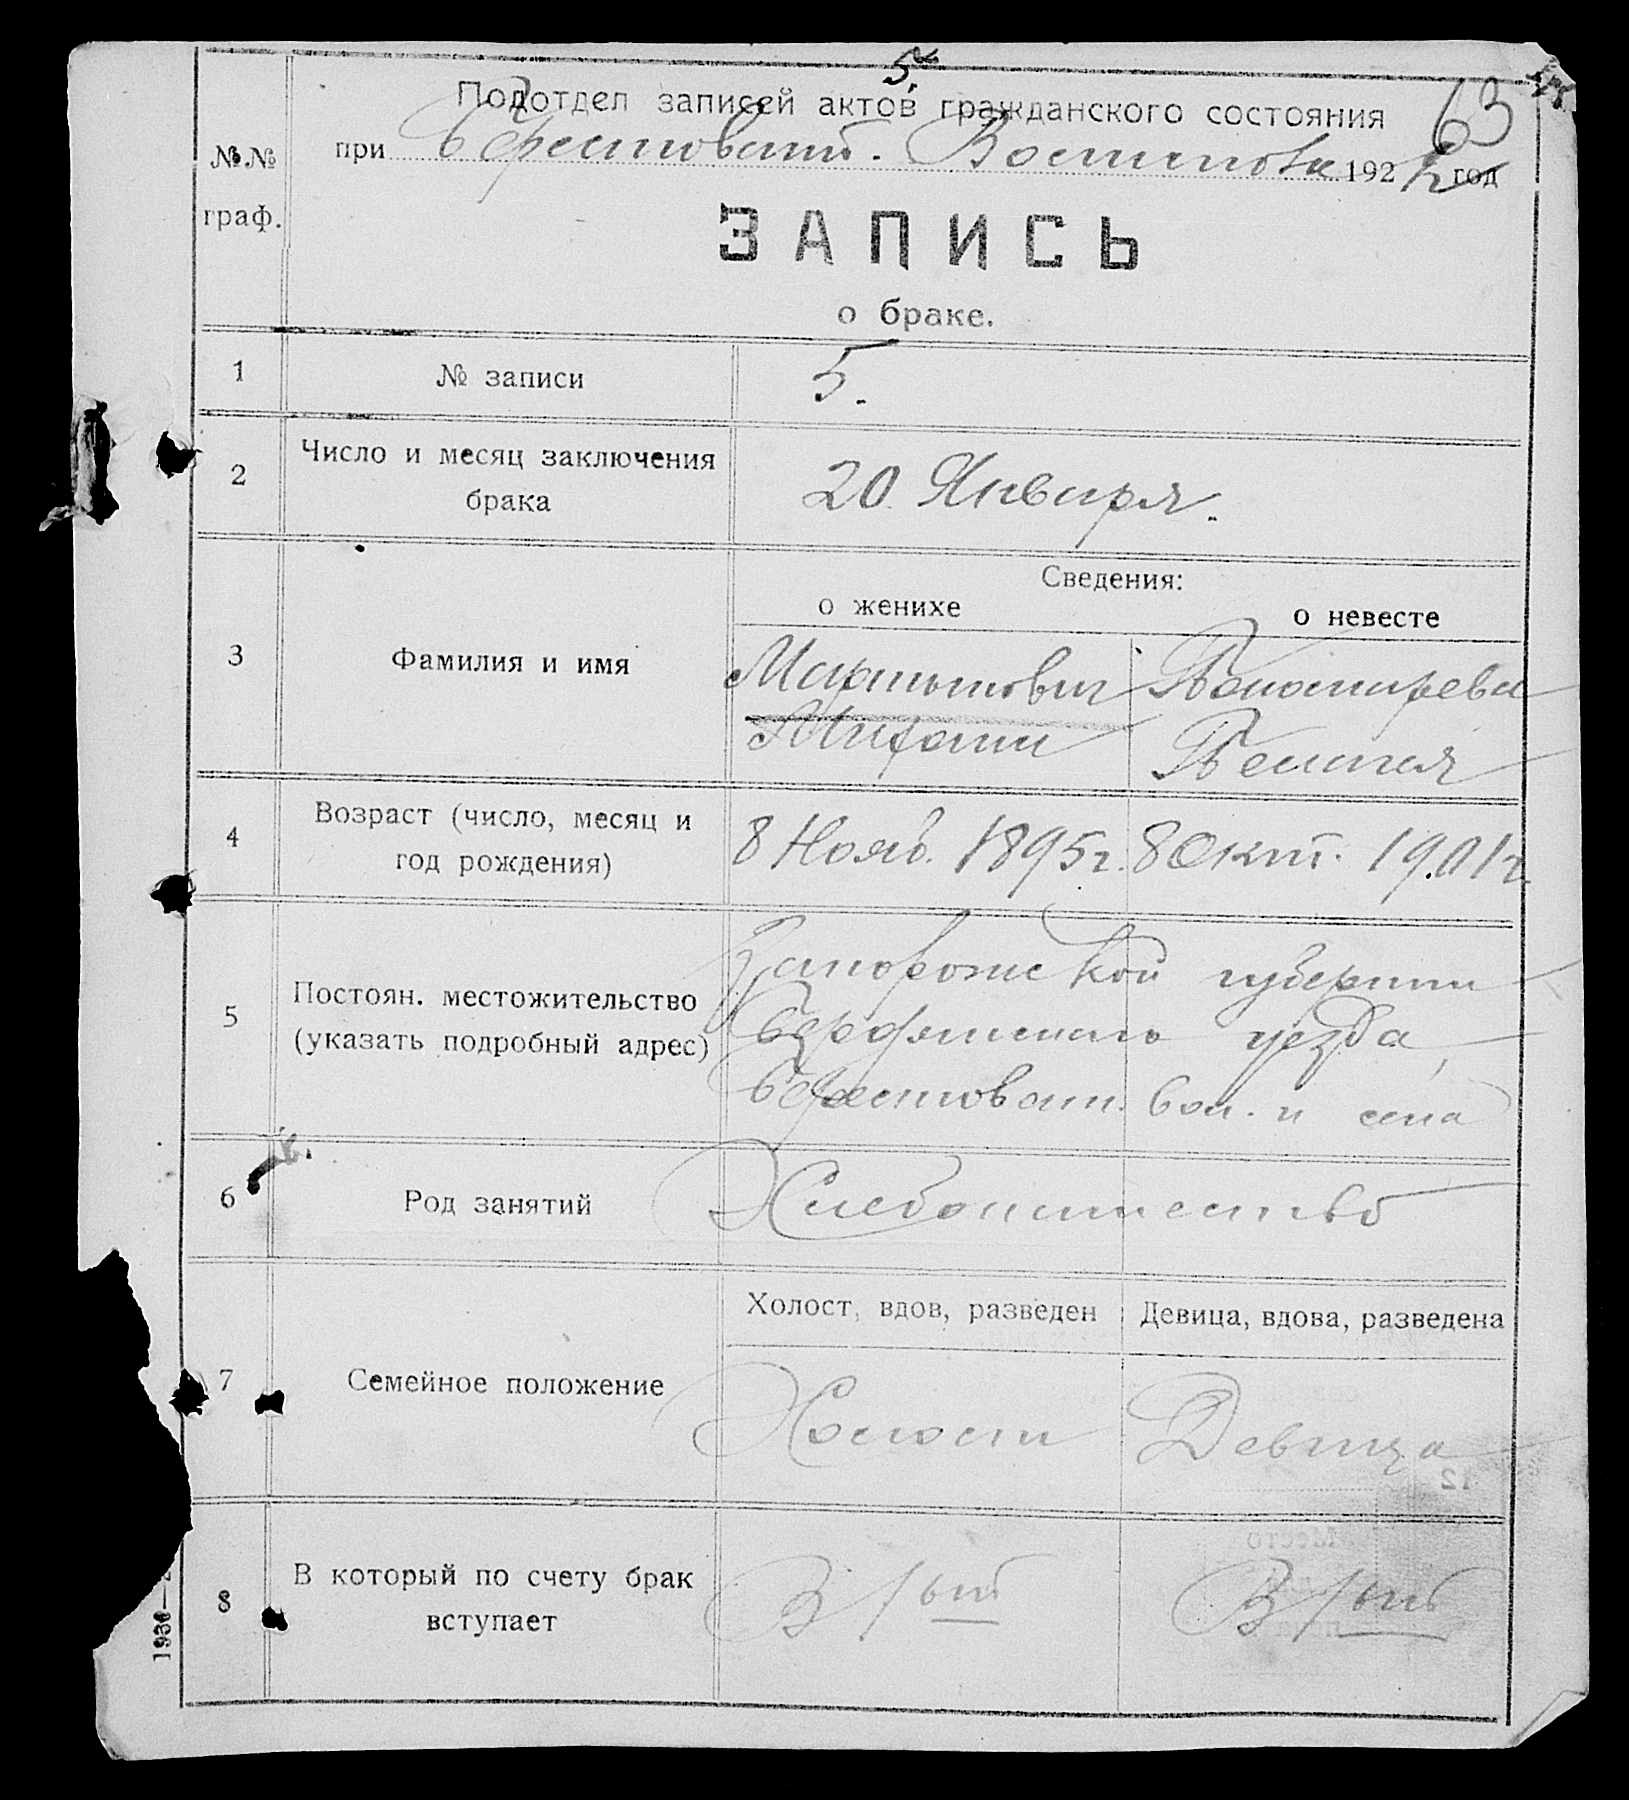 5
63
Подотдел записей актов гражданского состояния
при Берестовск. Волисполк 192 2 год
№№
граф.
ЗАПИСЬ
о браке.
1 № записи 5.
2 Число и месяц заключения
брака
20 Января.
Сведения:
о женихе о невесте
3 Фамилия и имя
Мартынович Пономарева
Михаил Пелагея
4 Возраст (число, месяц и
год рождения)
8 Нояб. 1895 г. 8 Окт. 1901 г.
5 Постоян. местожительство
(указать подробный адрес)
Запорожской губернии
Бердянского уезда,
Берестовск. вол. и села
6 Род занятий Хлебопашество
Холост, вдов, разведен Девица, вдова, разведена
7 Семейное положение
Холост Девица
8 В который по счету брак
вступает
В 1ый В 1ый